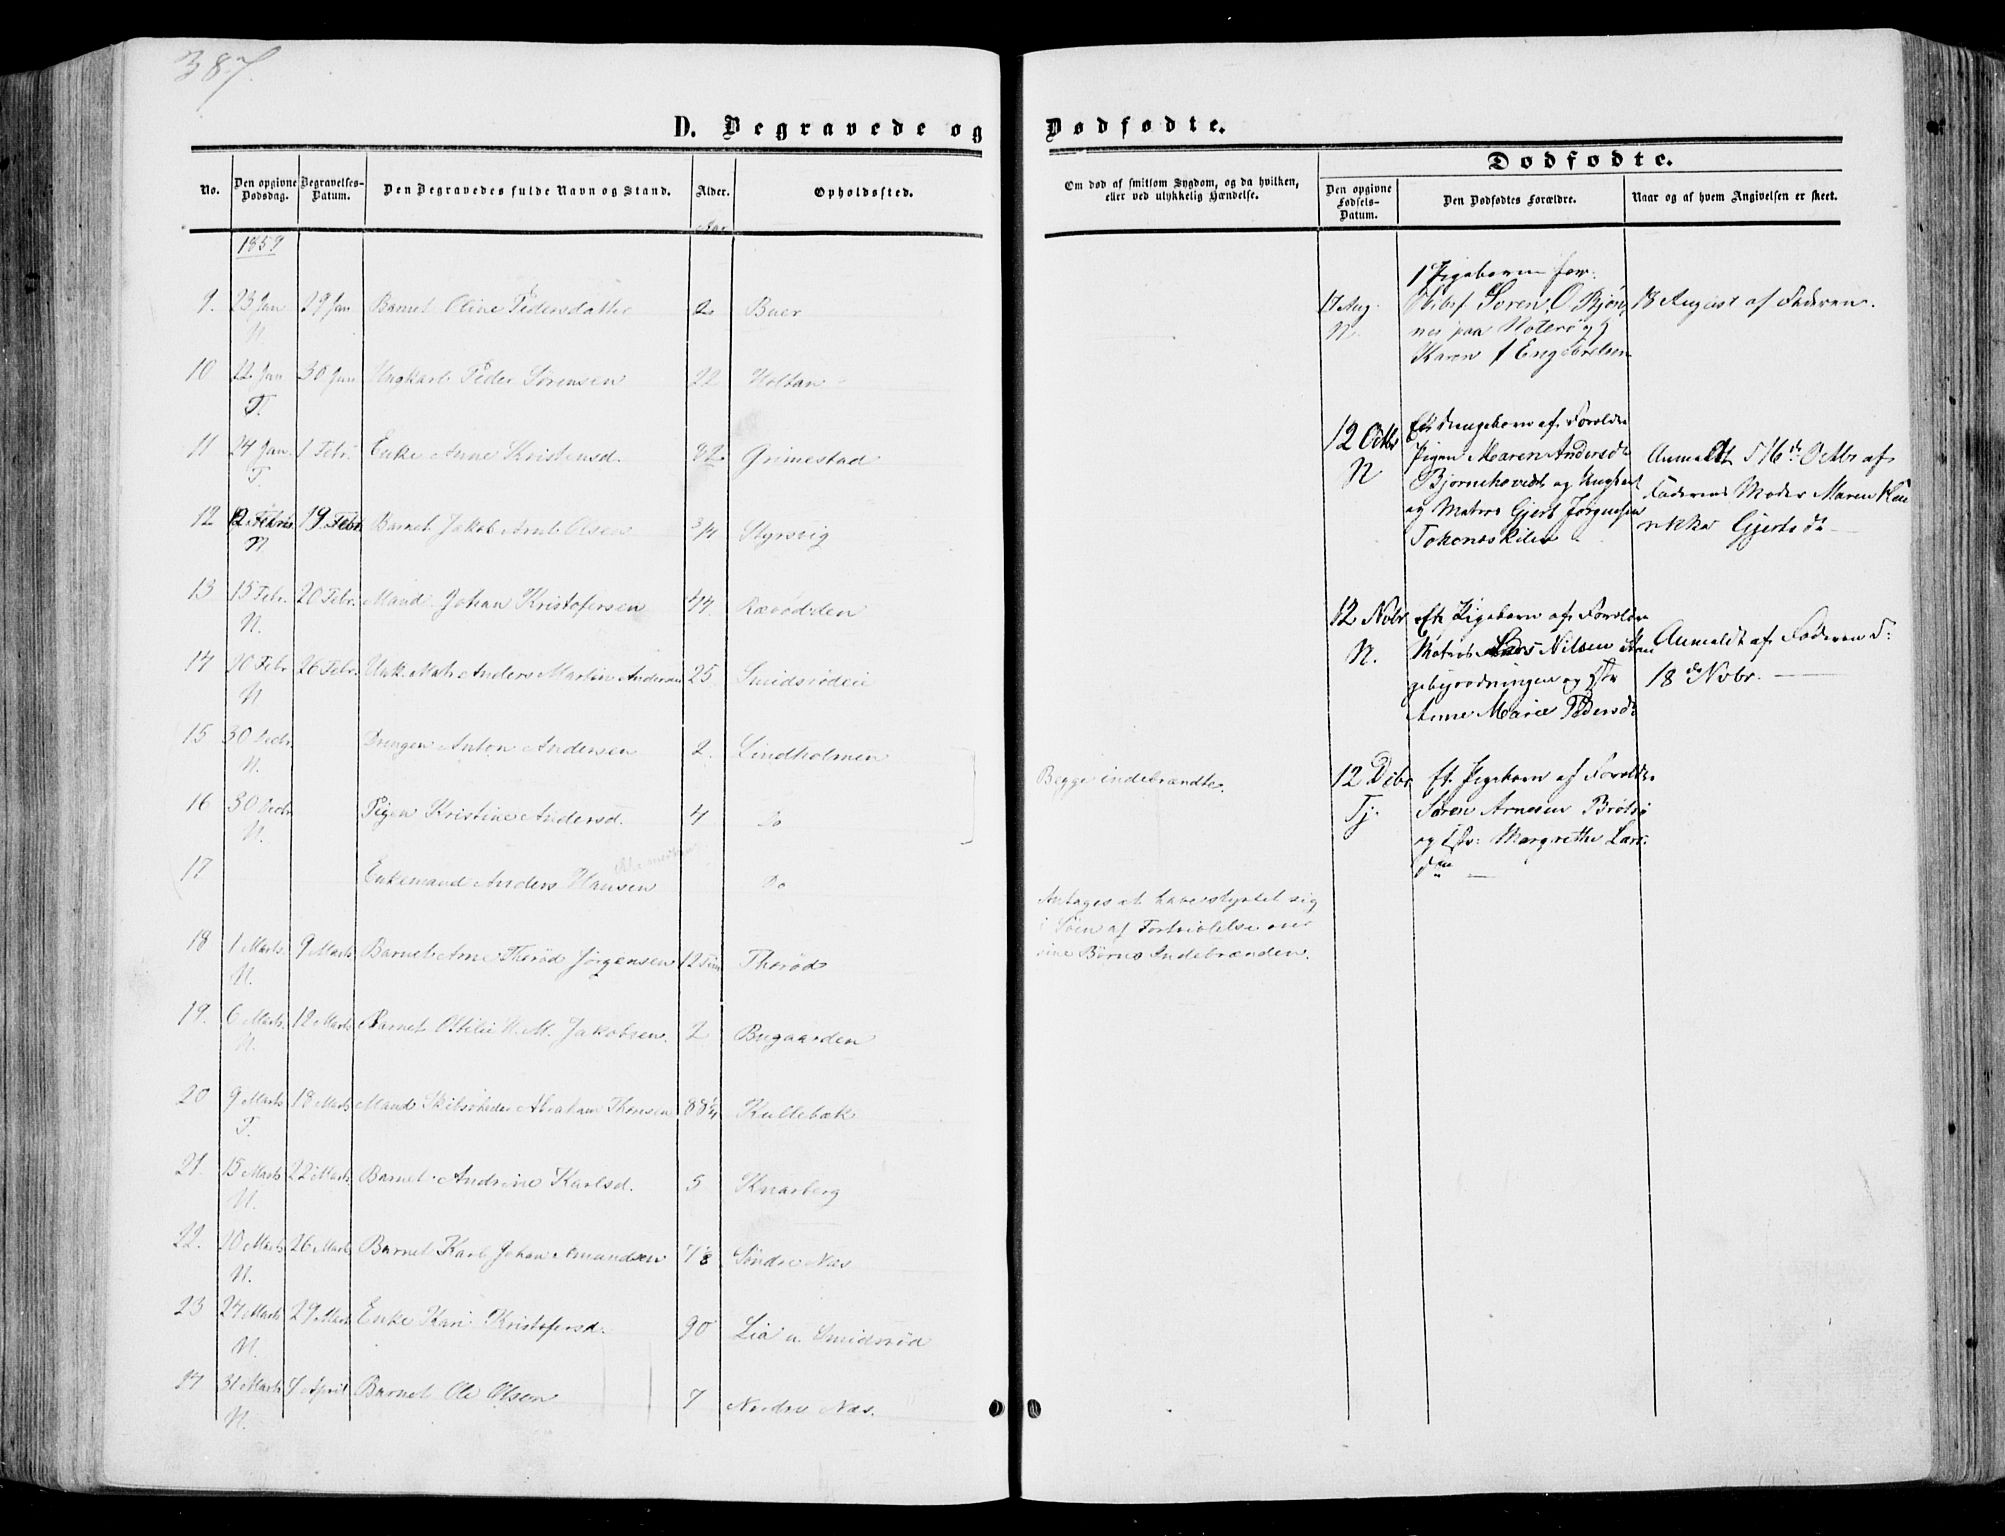 387.
D. Begravede og Dødfødte.
Dødfødte.
No.
Den opgivne Dødsdag.
Begravelses-Datum.
Den Begravedes fulde Navn og Stand.
Alder.
Opholdssted.
Om død af smitsom Sygdom, og da hvilken, eller ved ulykkelig Hændelse.
Den opgivne Fødsels-Datum.
Den Dødfødtes Forældre.
Naar og af hvem Angivelsen er skeet.
1859
9. 23 Jan 29 Jan Barnet Oline Pedersdatter 2 Buer
N.
10 22 Jan 30 Jan Ungkarl Peder Sørensen 22 Holtan
T.
11 24 Jan 1 Febr. Enke Anne Kristensd. 82 Grimestad
T
12 12 Febr 19 Febr. Barnet Jakob Olsen 3/4 Styrsvig
N
13 15 Febr. 20 Febr. Mand Johan Kristofersen 44 Rævødden
N.
14 20 Febr 26 Febr. Unk. Mat. Anders Martin Andersen 25 Smidsrødeie
N
15 30 Decbr. Drengen Anton Andersen 2. Lindholmen
N.
16 30 Decbr Pigen Kristine Andersd. 4 Do
N.
Begge indebrændte.
17 Enkemand Anders Hansen Do
Antages at have styrtet sig
i Søen af Fortvivlelse over
sine Børns Indebrænden.
18 1 Marts 9 Marts Barnet Arne Therød Jørgensen 12 Tim Therød
N.
19. 6 Marts 12 Marts Barnet Ottilie N. M. Jakobsen. 2 Bugaarden
N.
20 9 Marts 18 Marts Mand Abraham Thorsen 88 1/4 Kullebæk
T.
21. 15 Marts 22 Marts Barnet Andrine Karlsd. 5 Knarberg
N.
22. 20 Marts 26 Marts Barnet Karl Johan Amundsen Søndre Næs
N.
23 24 Marts 29 Marts Enke Kari Kristofersd. 90 Lia u. Smidsrød
N.
24 31 Marts 7 April Barnet Ole Olsen 7 Nordre Næs.
N.
17 Aug. N.
1 Pigebarn for.
Søren O. Bjønnes paa Nøterø og
Karen Engebretsen
18 August af Faderen.
12 Octbr N
Et Drengebarn af Foreldre
Pigen Maren Andersdr
Bjørnehovedt og Ungkarl
og Matros Gjert Jørgensen
Anmeldt d 16de Octbr af
Faderens Moder Maren
Gjertsdr
12 Nobr N.
Et Pigebarn af Foreldre
Matros Lars Nilsen
og Hstr
Anne Marie Pedersdr
Anmeldt af Faderen d:
18de Nobr.
12 Dcbr Tj.
Et Pigebarn af Foreldre
Søren Arnesen Brøtsø
og Hstr: Margrethe Lars-